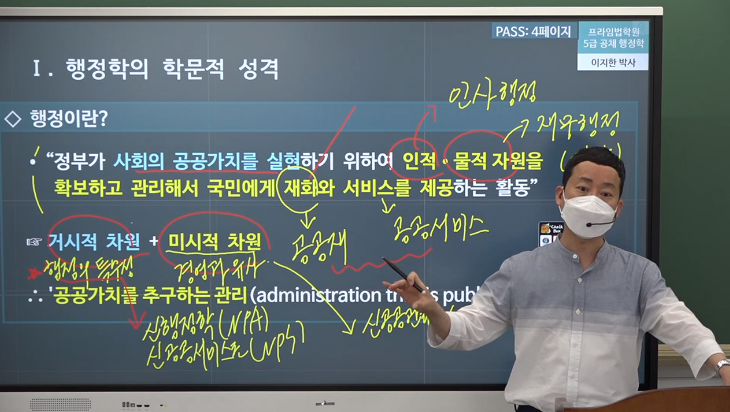 PASS: 4페이지
프라임법학원
5급 공채 행정학
이지한 박사
Ⅰ. 행정학의 학문적 성격
인사행정
◇ 행정이란?
재무행정
• “정부가 사회의 공공가치를 실현하기 위하여 인적·물적 자원을
확보하고 관리해서 국민에게 재화와 서비스를 제공하는 활동”
공공재
공공서비스
☞ 거시적 차원 + 미시적 차원
행정의 특수성
∴ '공공가치를 추구하는 관리(administration th is pub
신행정학(NPA)
신공공서비스론(NPS)
신공공관리